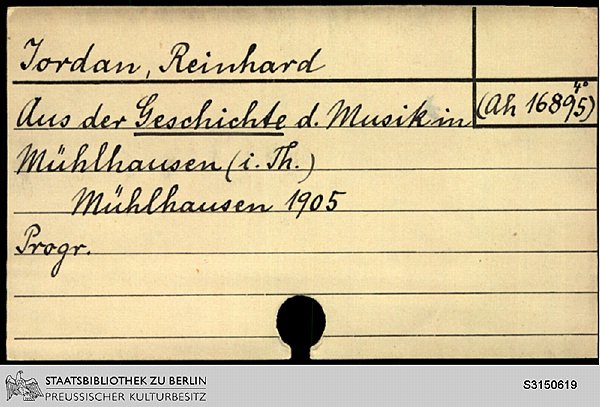 Jordan, Reinhard
4°
(Ah 16895)
Aus der Geschichte d. Musik in
Mühlhausen (i. Th.)
Mühlhausen 1905
Progr.
STAATSBIBLIOTHEK ZU BERLIN
PREUSSISCHER KULTURBESITZ
S3150619